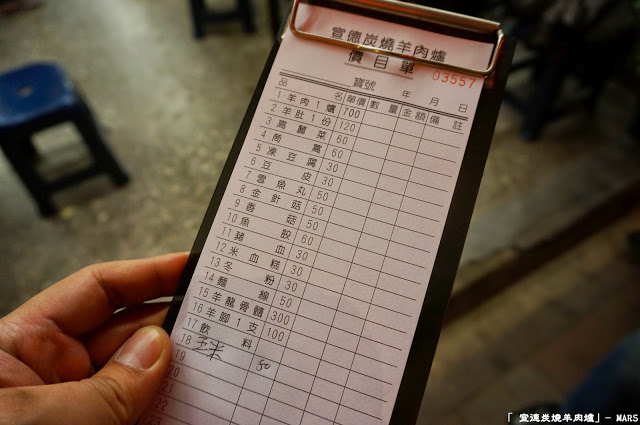 宣德炭燒羊肉爐
價目單
03557
寶號 年 月 日
品 名 單價 數量 金額 備註
1 羊肉1爐 700
2 羊肚1份 120
3 高麗菜 60
4 茼蒿 60
5 凍豆腐 30
6 豆皮 30
7 雪魚丸 50
8 金針菇 50
9 香菇 50
10 魚餃 60
11 豬血 30
12 米血糕 30
13 冬粉 30
14 麵線 50
15 羊龍骨髓 300
16 羊腳1支 100
17 飲料
18 玉米 50
19
20
21
「 宣德炭燒羊肉爐」- MARS